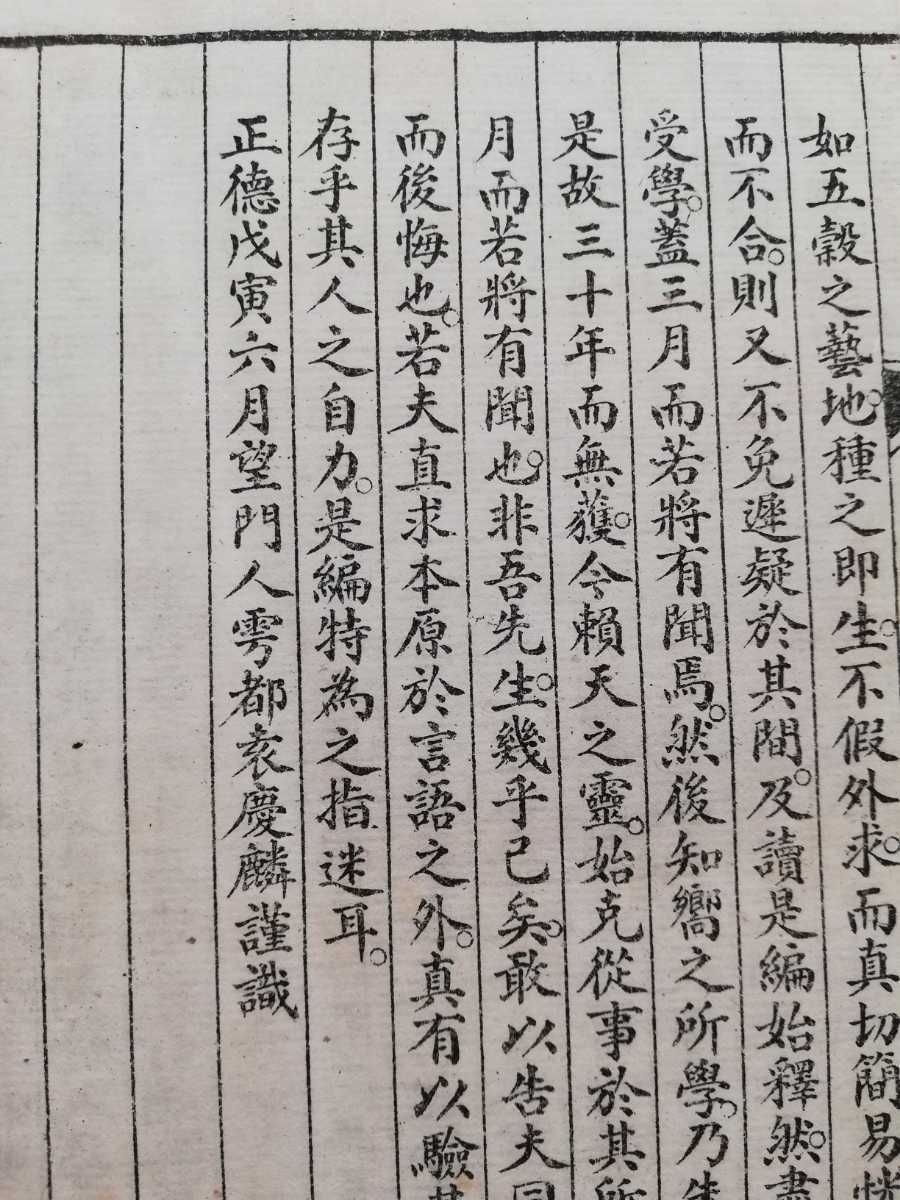 如五穀之藝。地種之即生。不假外求。而真切簡易
而不合。則又不免遲疑於其間。及讀是編始釋然。
受學。蓋三月而若將有聞焉。然後知嚮之所學。乃
是故三十年而無獲。今賴天之靈。始克從事於其所
月而若將有聞也。非吾先生。幾乎已矣。敢以告夫同
而後悔也。若夫直求本原於言語之外。真有以驗其
存乎其人之自力。是編特為之指迷耳。
正德戊寅六月望門人雩都袁慶麟謹識